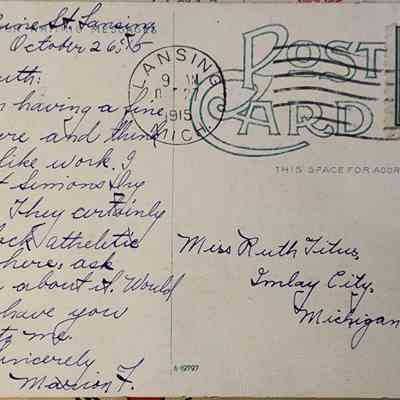 Pine St. Lansing
WRITING MESSAGES
October 26, '15
uth:
m having a fine
ere and think
like work. I
t Simons Dry
They certainly
ock athletic
here, ask
n about it. Would
have you
to me
Sincerely
Marion F.
LANSING
9
1915
MICH.
POST
CARD
THIS SPACE FOR ADDR
Miss Ruth Titus,
Imlay City,
Michigan
A-19797